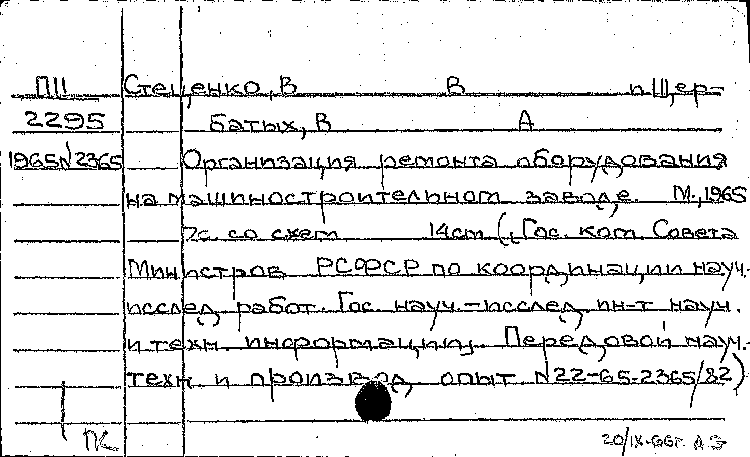 ПII Стеценко, В В п Щер-
2295 батых, В А
1965 N 2365 Организация ремонта оборудования
на машиностроительном заводе. М., 1965
7с. со схем 14см (, Гос. ком. Совета
Министров РСФСР по координации науч.-
исслед, работ. Гос. науч.-исслед, ин-т науч.
и техн. информации, Передовой науч.-
техн. и производ, опыт. N 22-65-2365/82)
ПК 20/IX-66г. АЗ